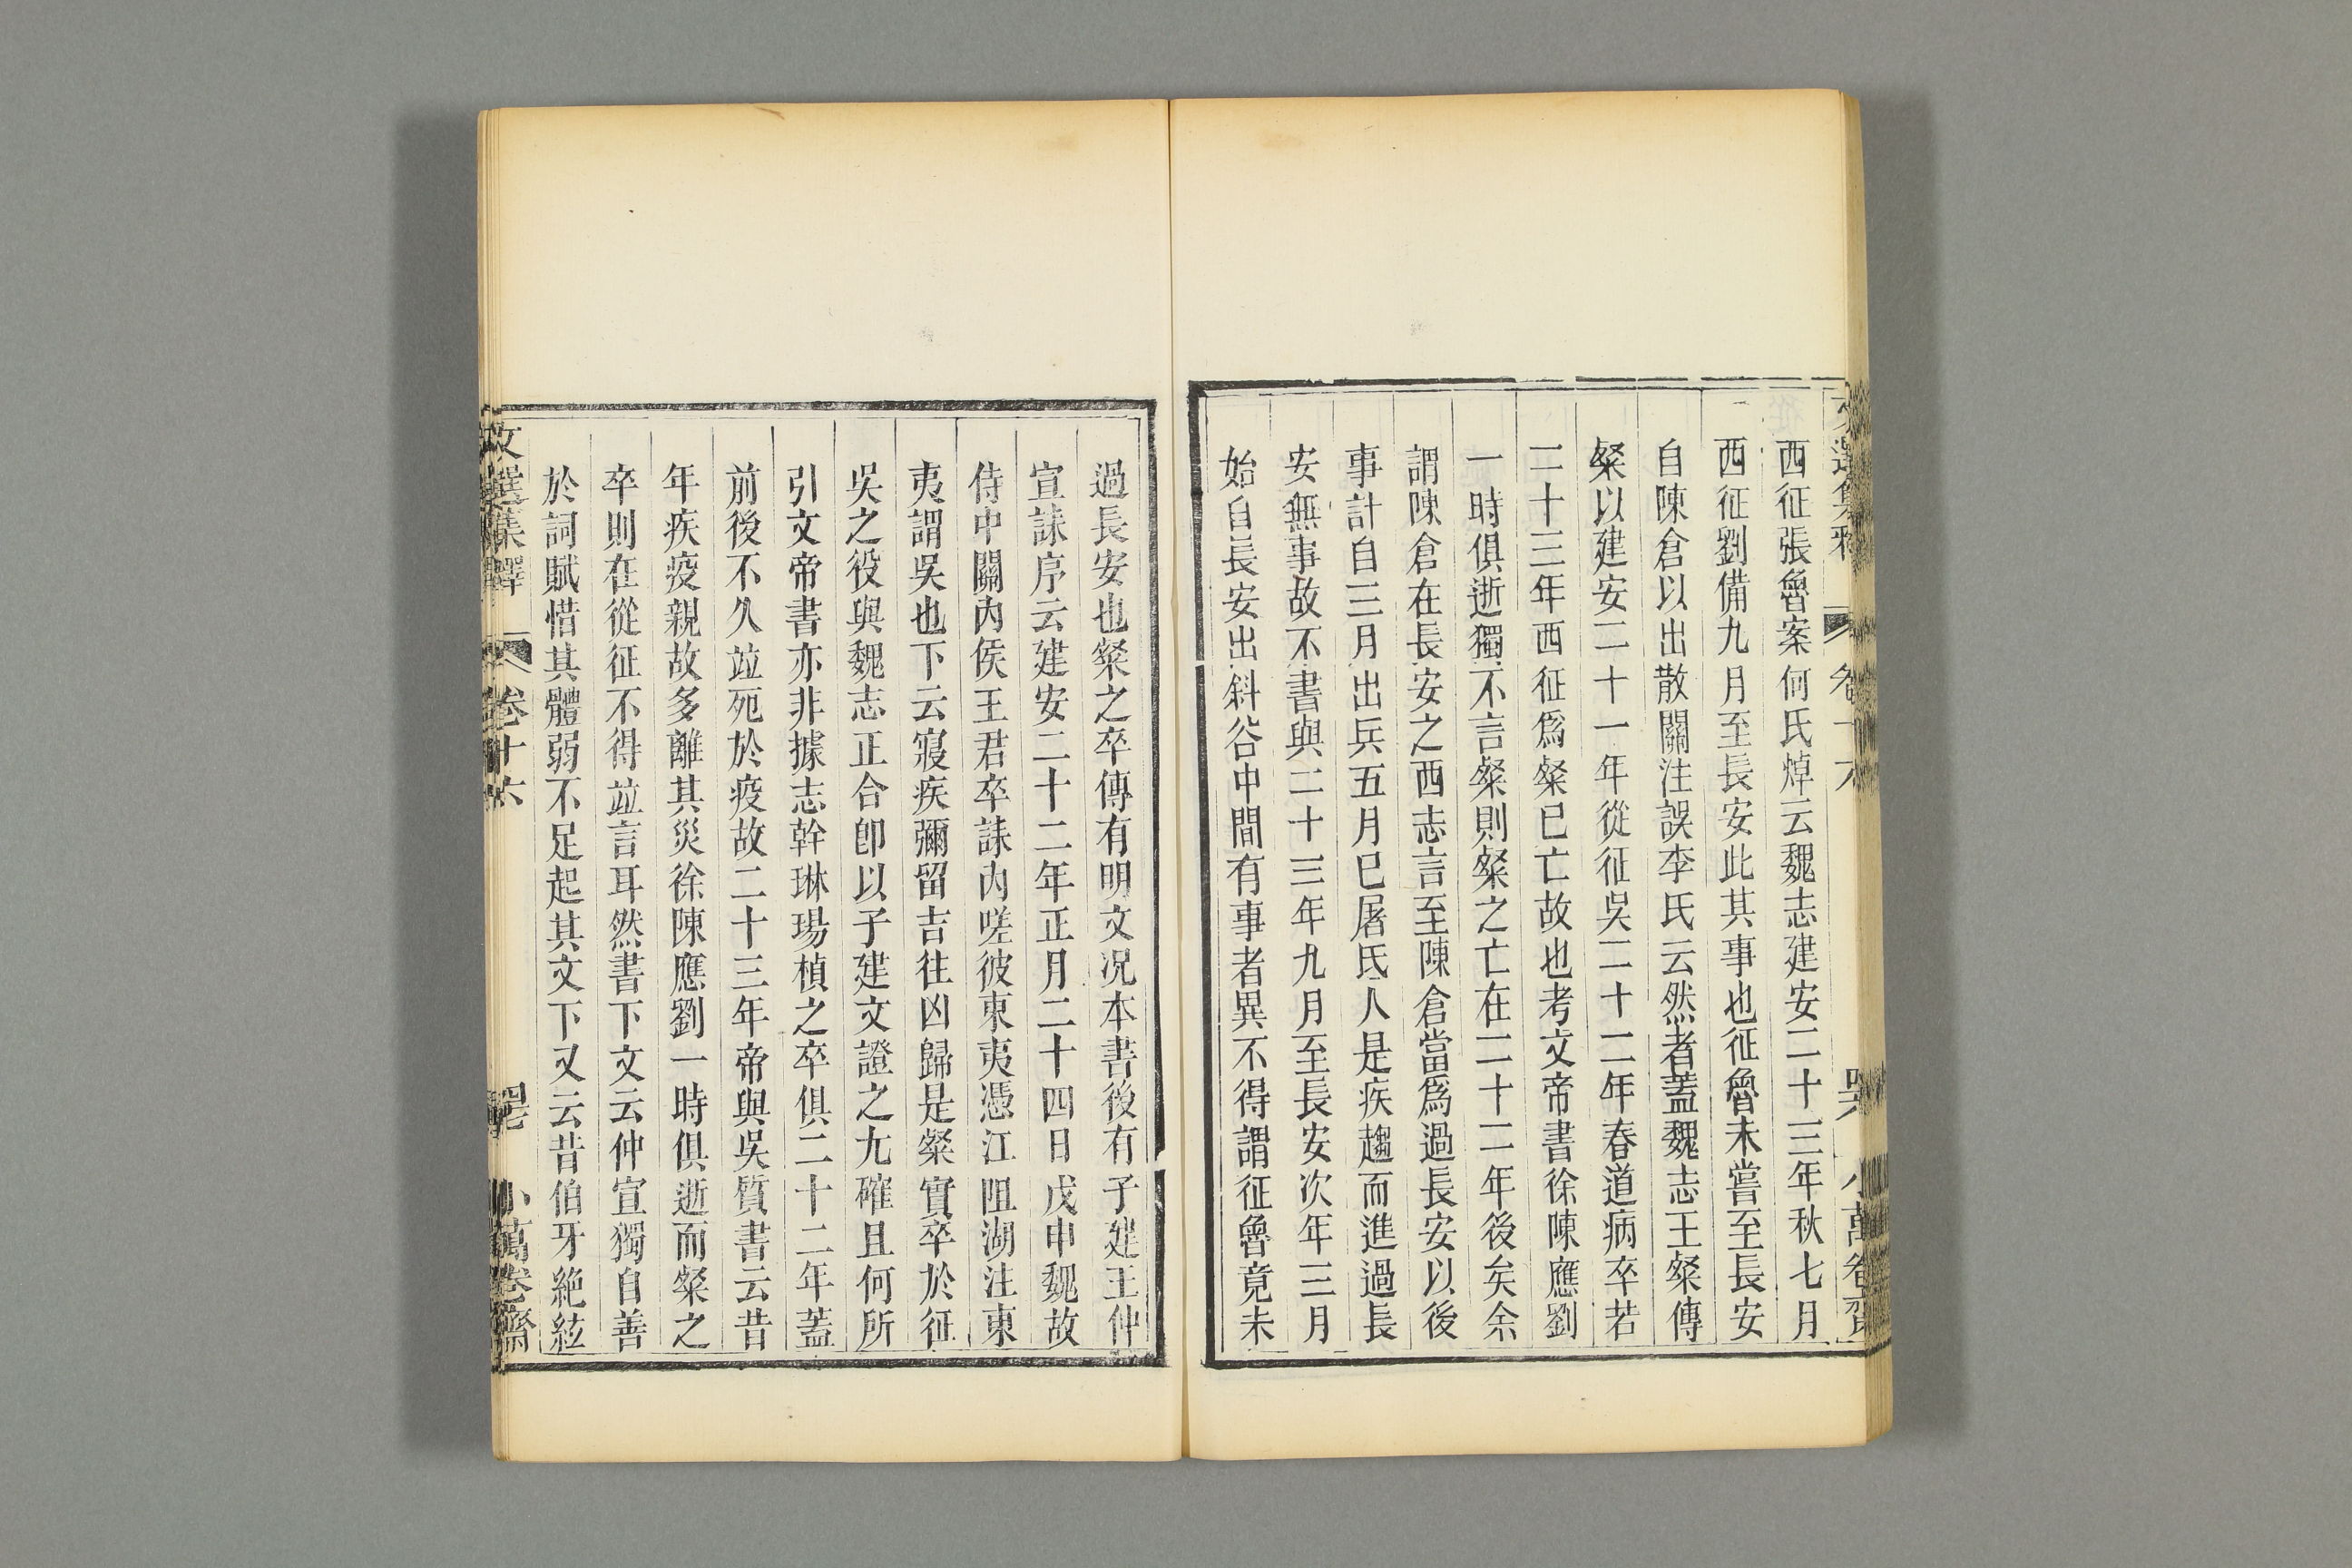 西征張魯案何氏焯云魏志建安二十三年秋七月
西征劉備九月至長安此其事也征魯未嘗至長安
自陳倉以出散關注誤李氏云然者蓋魏志王粲傳
粲以建安二十一年從征吳二十二年春道病卒若
二十三年西征爲粲已亡故也考文帝書徐陳應劉
一時俱逝獨不言粲則粲之亡在二十二年後矣余
謂陳倉在長安之西志言至陳倉當爲過長安以後
事計自三月出兵五月已屠氐人是疾趨而進過長
安無事故不書與二十三年九月至長安次年三月
始自長安出斜谷中間有事者異不得謂征魯竟未
過長安也粲之卒傳有明文況本書後有子建王仲
宣誄序云建安二十二年正月二十四日戊申魏故
侍中關內侯王君卒誄內嗟彼東夷憑江阻湖注東
夷謂吳也下云寢疾彌留吉往凶歸是粲實卒於征
吳之役與魏志正合卽以子建文證之尤確且何所
引文帝書亦非據志幹琳瑒楨之卒俱二十二年蓋
前後不久竝死於疫故二十三年帝與吳質書云昔
年疾疫親故多離其災徐陳應劉一時俱逝而粲之
卒則在從征不得竝言耳然書下文云仲宣獨自善
於詞賦惜其體弱不足起其文下又云昔伯牙絶絃
文選集釋 卷十六 小萬卷齋